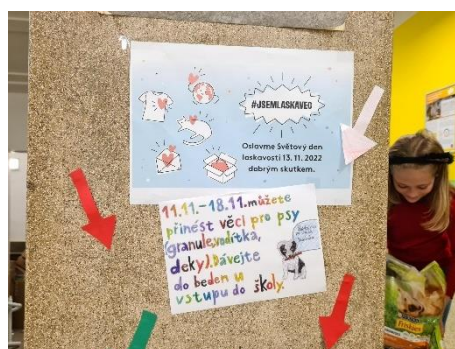 #JSEMLASKAVEC
Oslavme Světový den
laskavosti 13. 11. 2022
dobrým skutkem.
11.11.–18.11. můžete
přinést věci pro psy
(granule, vodítka,
deky). Dávejte
do beden u
vstupu do školy.